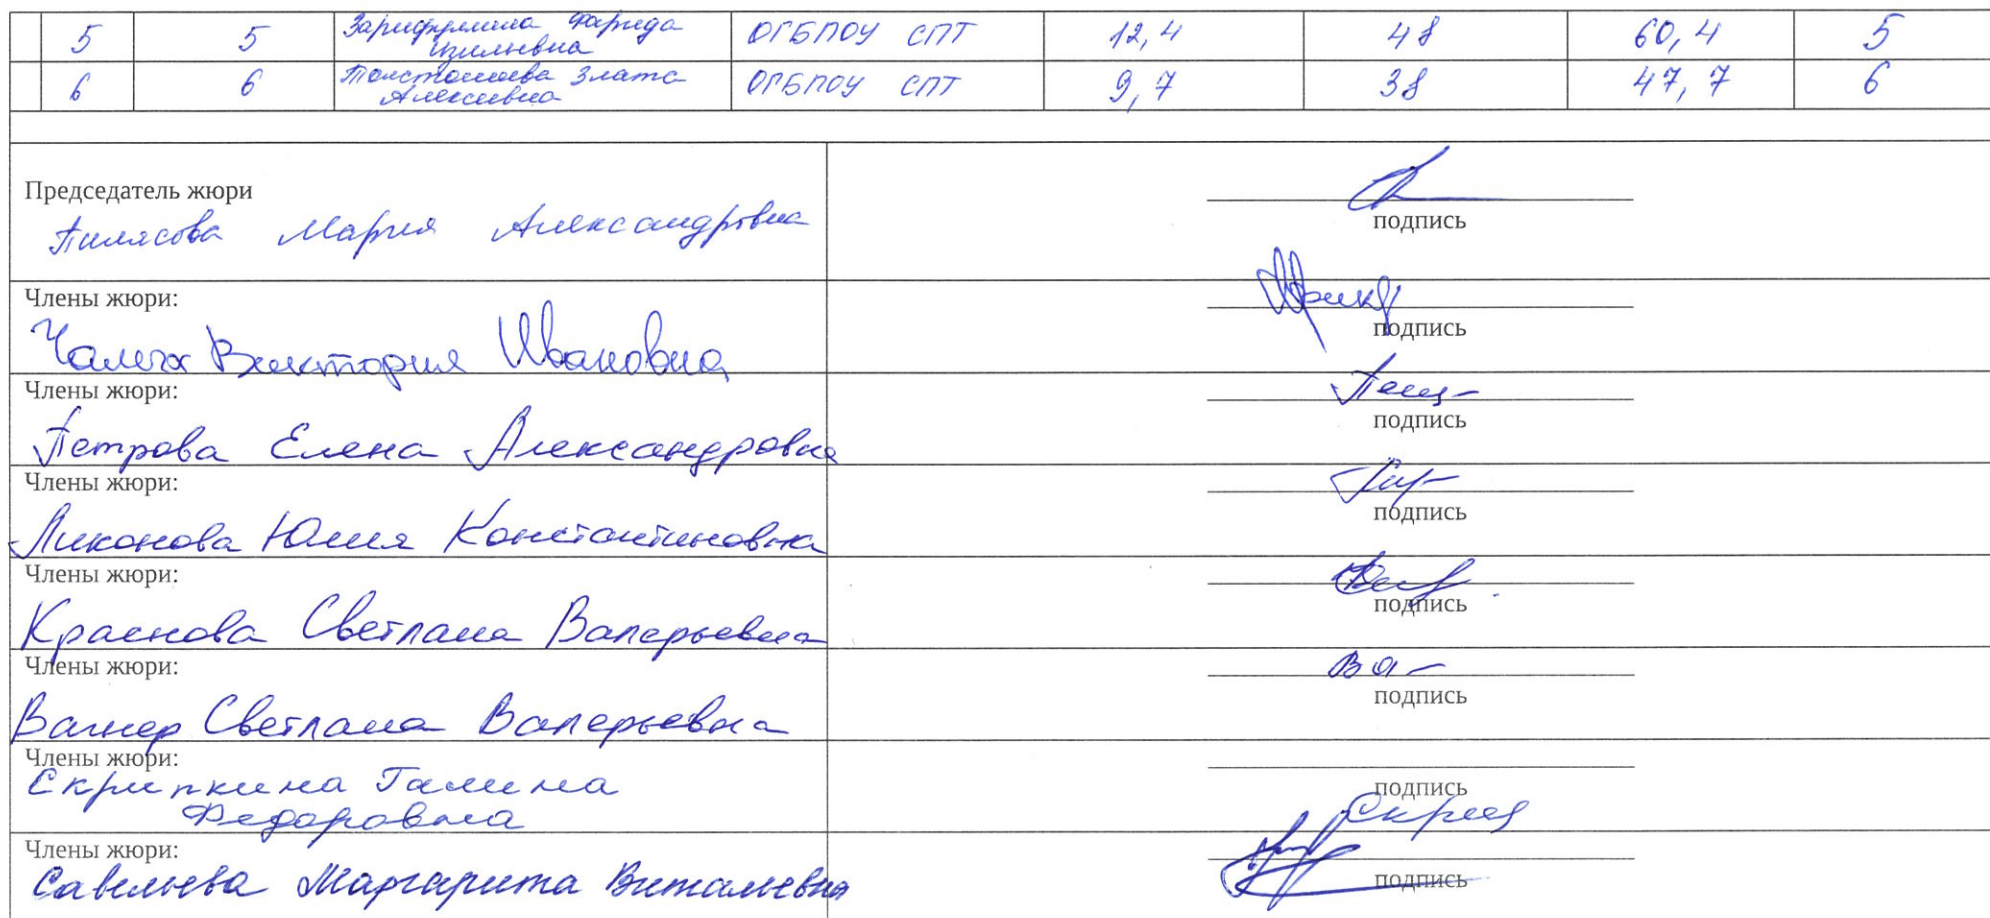 5 5 Фарида ОГБПОУ СПТ 12,4 48 60,4 5
6 6 Злата ОГБПОУ СПТ 9,7 38 47,7 6
Алексеевна
Председатель жюри
Пилясова Мария Александровна
подпись
Члены жюри:
Чалых Виктория Ивановна
подпись
Члены жюри:
Петрова Елена Александровна
подпись
Члены жюри:
Ликонова Юлия Константиновна
подпись
Члены жюри:
Краснова Светлана Валерьевна
подпись
Члены жюри:
Вагнер Светлана Валерьевна
подпись
Ва
Члены жюри:
Скрипкина Галина
Федоровна
подпись
Члены жюри:
Савельева Маргарита Витальевна
подпись